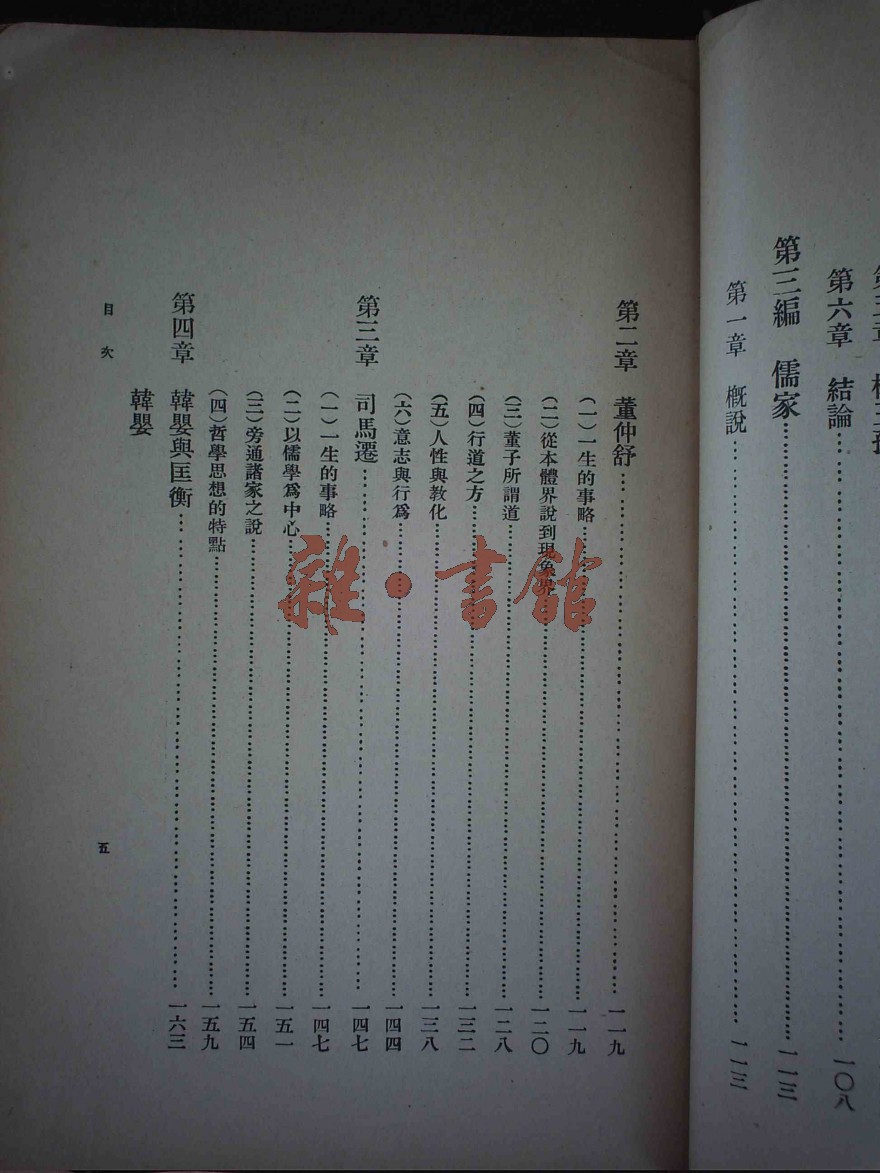 第六章　結論……一〇八
第三編　儒家……一一三
第一章　概說……一一三
第二章　董仲舒……一一九
(一)一生的事略……一一九
(二)從本體界說到現象界……一二〇
(三)董子所謂道……一二八
(四)行道之方……一三二
(五)人性與教化……一三八
(六)意志與行爲……一四四
第三章　司馬遷……一四七
(一)一生的事略……一四七
(二)以儒學爲中心……一五一
(三)旁通諸家之說……一五四
(四)哲學思想的特點……一五九
第四章　韓嬰與匡衡……一六三
韓嬰
目次
五
雜·書館